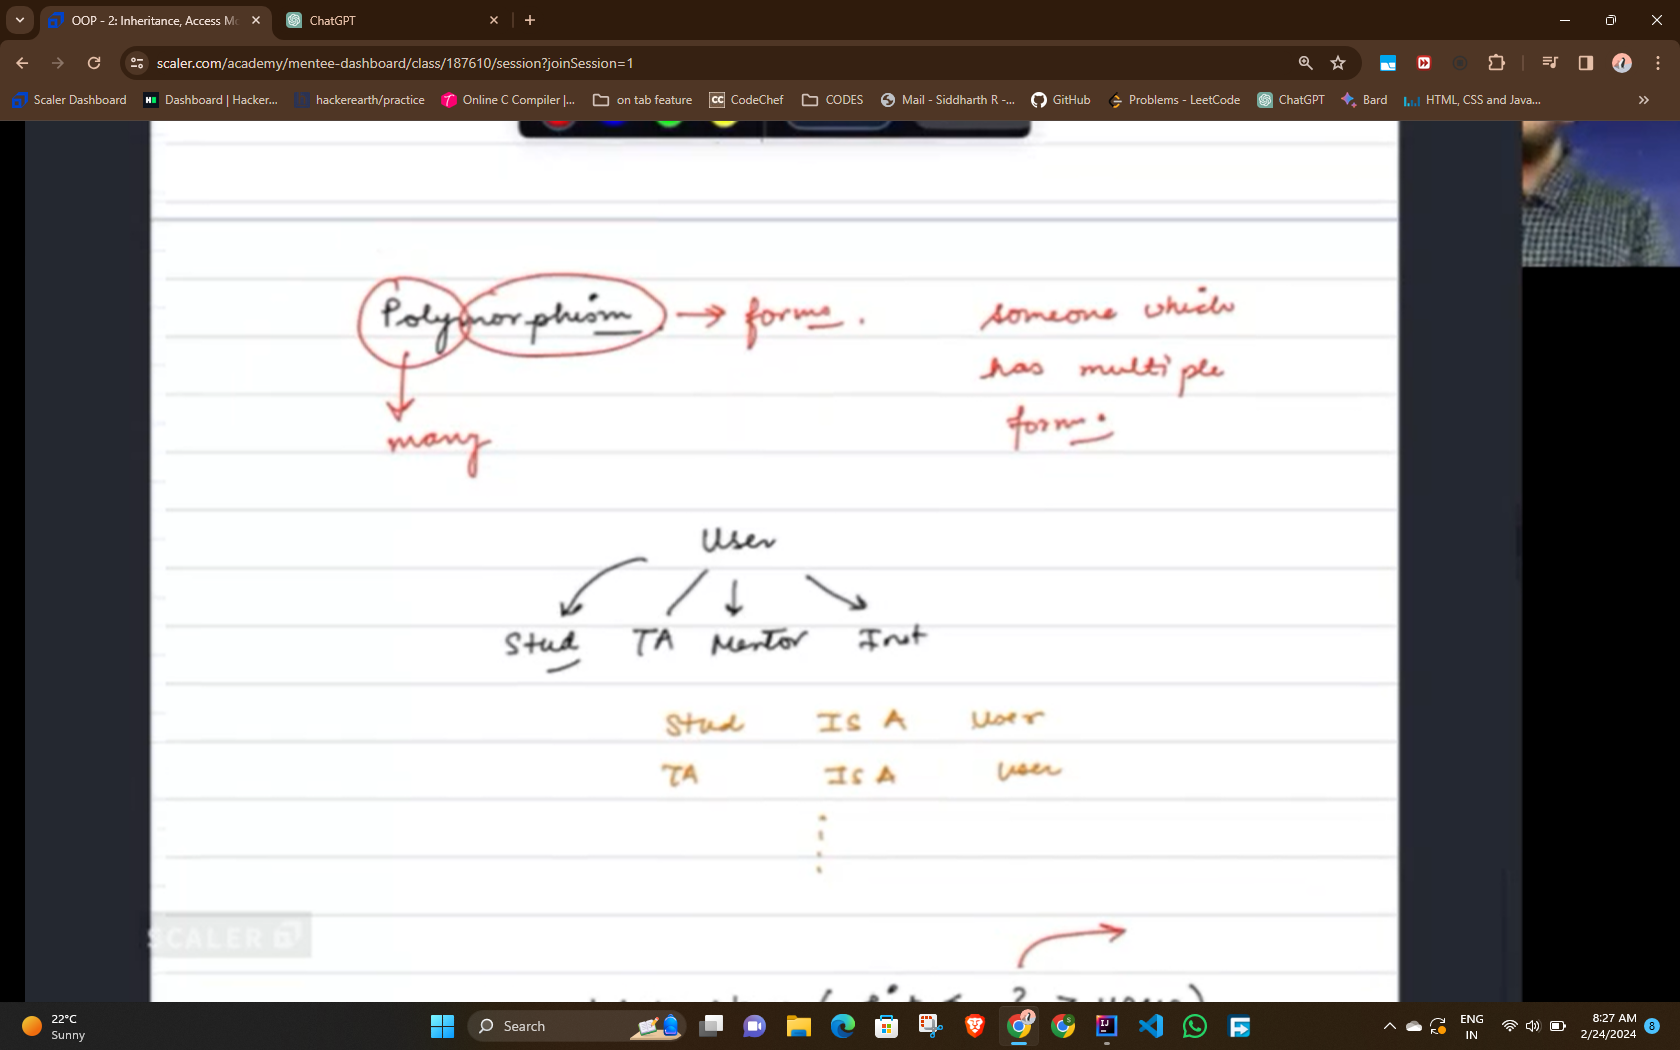 OOP - 2: Inheritance, Access Mo
ChatGPT
scaler.com/academy/mentee-dashboard/class/187610/session?joinSession=1
Scaler Dashboard
Dashboard | Hacker...
hackerearth/practice
Online C Compiler |...
on tab feature
CodeChef
CODES
Mail - Siddharth R -...
GitHub
Problems - LeetCode
ChatGPT
Bard
HTML, CSS and Java...
Polymorphism → forms. someone which
has multiple
many
forms.
User
Stud TA Mentor Inst
Stud IS A User
TA IS A User
SCALER
22°C
Sunny
Search
ENG
IN
8:27 AM
2/24/2024
8